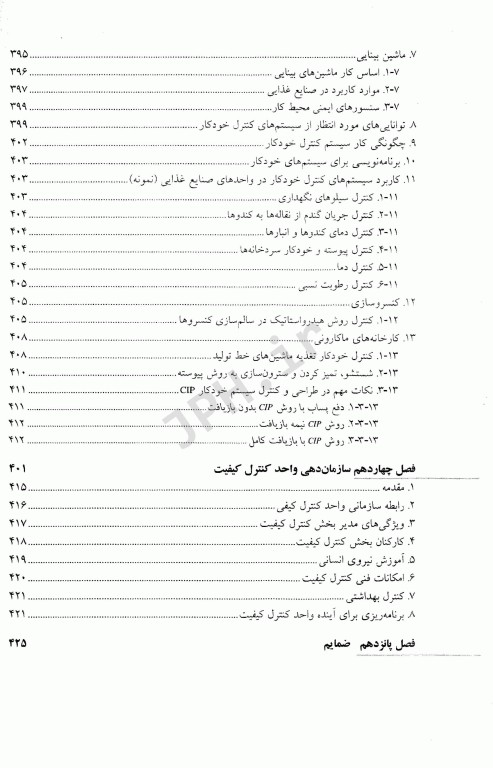 ۷. ماشین بینایی ۳۹۵
۷-۱. اساس کار ماشین‌های بینایی ۳۹۶
۷-۲. موارد کاربرد در صنایع غذایی ۳۹۷
۷-۳. سنسورهای ایمنی محیط کار ۳۹۹
۸. توانایی‌های مورد انتظار از سیستم‌های کنترل خودکار ۳۹۹
۹. چگونگی کار سیستم کنترل خودکار ۴۰۲
۱۰. برنامه‌نویسی برای سیستم‌های خودکار ۴۰۳
۱۱. کاربرد سیستم‌های کنترل خودکار در واحدهای صنایع غذایی (نمونه) ۴۰۳
۱۱-۱. کنترل سیلوهای نگهداری ۴۰۳
۱۱-۲. کنترل جریان گندم از نقاله‌ها به کندوها ۴۰۴
۱۱-۳. کنترل دمای کندوها و انبارها ۴۰۴
۱۱-۴. کنترل پیوسته و خودکار سردخانه‌ها ۴۰۴
۱۱-۵. کنترل دما ۴۰۴
۱۱-۶. کنترل رطوبت نسبی ۴۰۵
۱۲. کنسروسازی ۴۰۵
۱۲-۱. کنترل روش هیدرواستاتیک در سالم‌سازی کنسروها ۴۰۵
۱۳. کارخانه‌های ماکارونی ۴۰۸
۱۳-۱. کنترل خودکار تغذیه ماشین‌های خط تولید ۴۰۸
۱۳-۲. شستشو، تمیز کردن و سترون‌سازی به روش پیوسته ۴۱۰
۱۳-۳. نکات مهم در طراحی و کنترل سیستم خودکار CIP ۴۱۱
۱۳-۳-۱. دفع پساب با روش CIP بدون بازیافت ۴۱۱
۱۳-۳-۲. روش CIP نیمه بازیافت ۴۱۲
۱۳-۳-۳. روش CIP با بازیافت کامل ۴۱۲
فصل چهاردهم سازمان‌دهی واحد کنترل کیفیت ۴۰۱
۱. مقدمه ۴۱۵
۲. رابطه سازمانی واحد کنترل کیفی ۴۱۶
۳. ویژگی‌های مدیر بخش کنترل کیفیت ۴۱۷
۴. کارکنان بخش کنترل کیفیت ۴۱۸
۵. آموزش نیروی انسانی ۴۱۹
۶. امکانات فنی کنترل کیفیت ۴۲۰
۷. کنترل بهداشتی ۴۲۱
۸. برنامه‌ریزی برای آینده واحد کنترل کیفیت ۴۲۱
فصل پانزدهم ضمایم ۴۲۵
JPH.ir